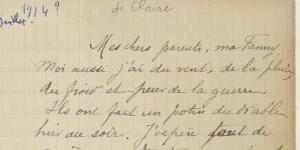 1914?
Juillet.
de Claire
Mes chers parents, ma Fanny,
Moi aussi j'ai du vent, de la pluie,
du froid et peur de la guerre.
Ils ont fait un potin du diable
hier au soir. J'espère tout de